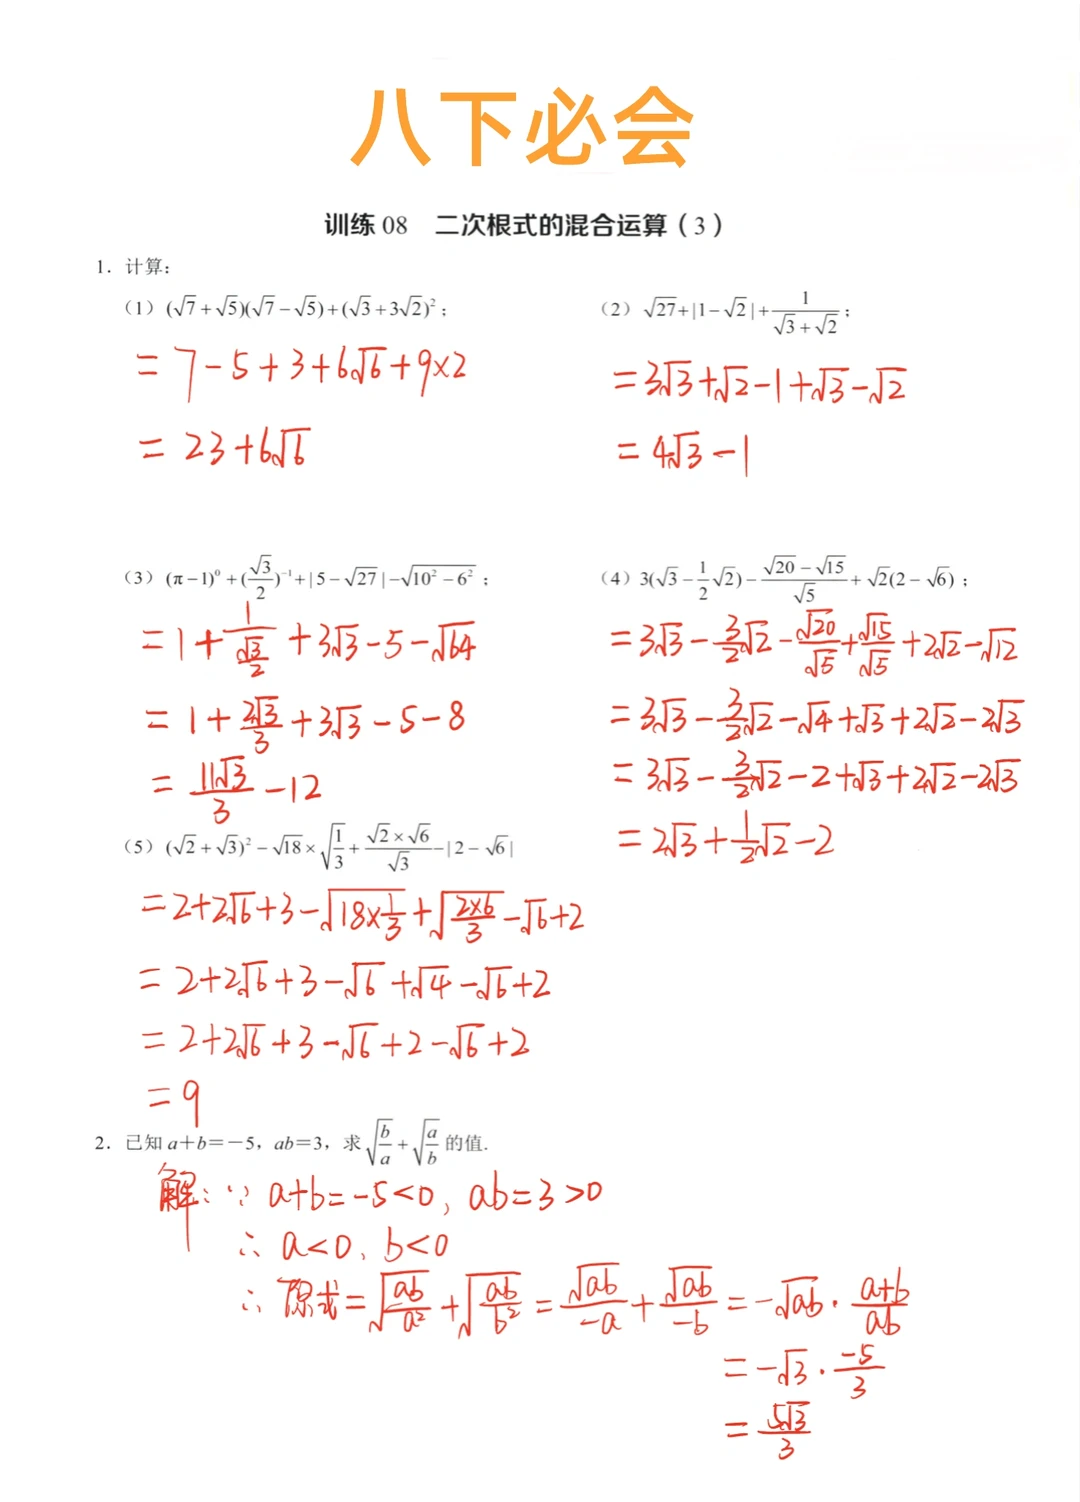 八下必会
训练 08 二次根式的混合运算（3）
1．计算：
（1）(√7+√5)(√7−√5)+(√3+3√2)²；
=7-5+3+6√6+9×2
=23+6√6
（2）√27+|1−√2|+1/(√3+√2)；
=3√3+√2-1+√3-√2
=4√3-1
（3）(π−1)⁰+(√3/2)⁻¹+|5−√27|−√(10²−6²)；
=1+1/(√3/2)+3√3-5-√64
=1+2√3/3+3√3-5-8
=11√3/3-12
（4）3(√3−1/2√2)−(√20−√15)/√5+√2(2−√6)；
=3√3-3/2√2-√20/√5+√15/√5+2√2-√12
=3√3-3/2√2-√4+√3+2√2-2√3
=3√3-3/2√2-2+√3+2√2-2√3
=2√3+1/2√2-2
（5）(√2+√3)²−√18×√(1/3)+(√2×√6)/√3−|2−√6|
=2+2√6+3-√(18×1/3)+√(2×6/3)-√6+2
=2+2√6+3-√6+√4-√6+2
=2+2√6+3-√6+2-√6+2
=9
2．已知 a＋b＝－5，ab＝3，求√(b/a)+√(a/b)的值.
解：∵ a+b=-5<0，ab=3>0
∴ a<0、b<0
∴ 原式=√(ab/a²)+√(ab/b²)=√ab/-a+√ab/-b=-√ab·(a+b)/ab
=-√3·-5/3
=5√3/3